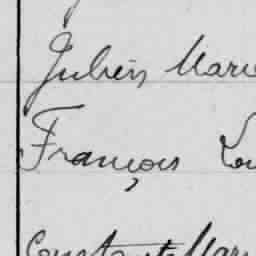 Julien Marie
François Lou
Constant Mari